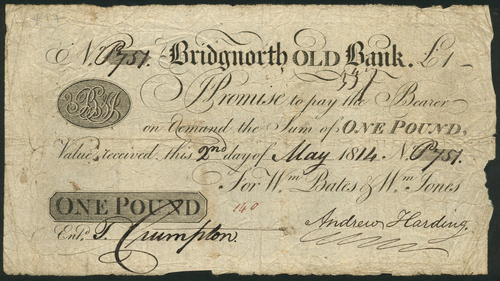 No. P751. Bridgnorth OLD Bank. £1-
I Promise to pay the Bearer
on demand the Sum of ONE POUND,
Value received, this 2nd day of May 1814 No. P751.
For Wm. Bates & Wm. Jones
ONE POUND
140
Andrew Harding.
Entd. T. Crumpton.